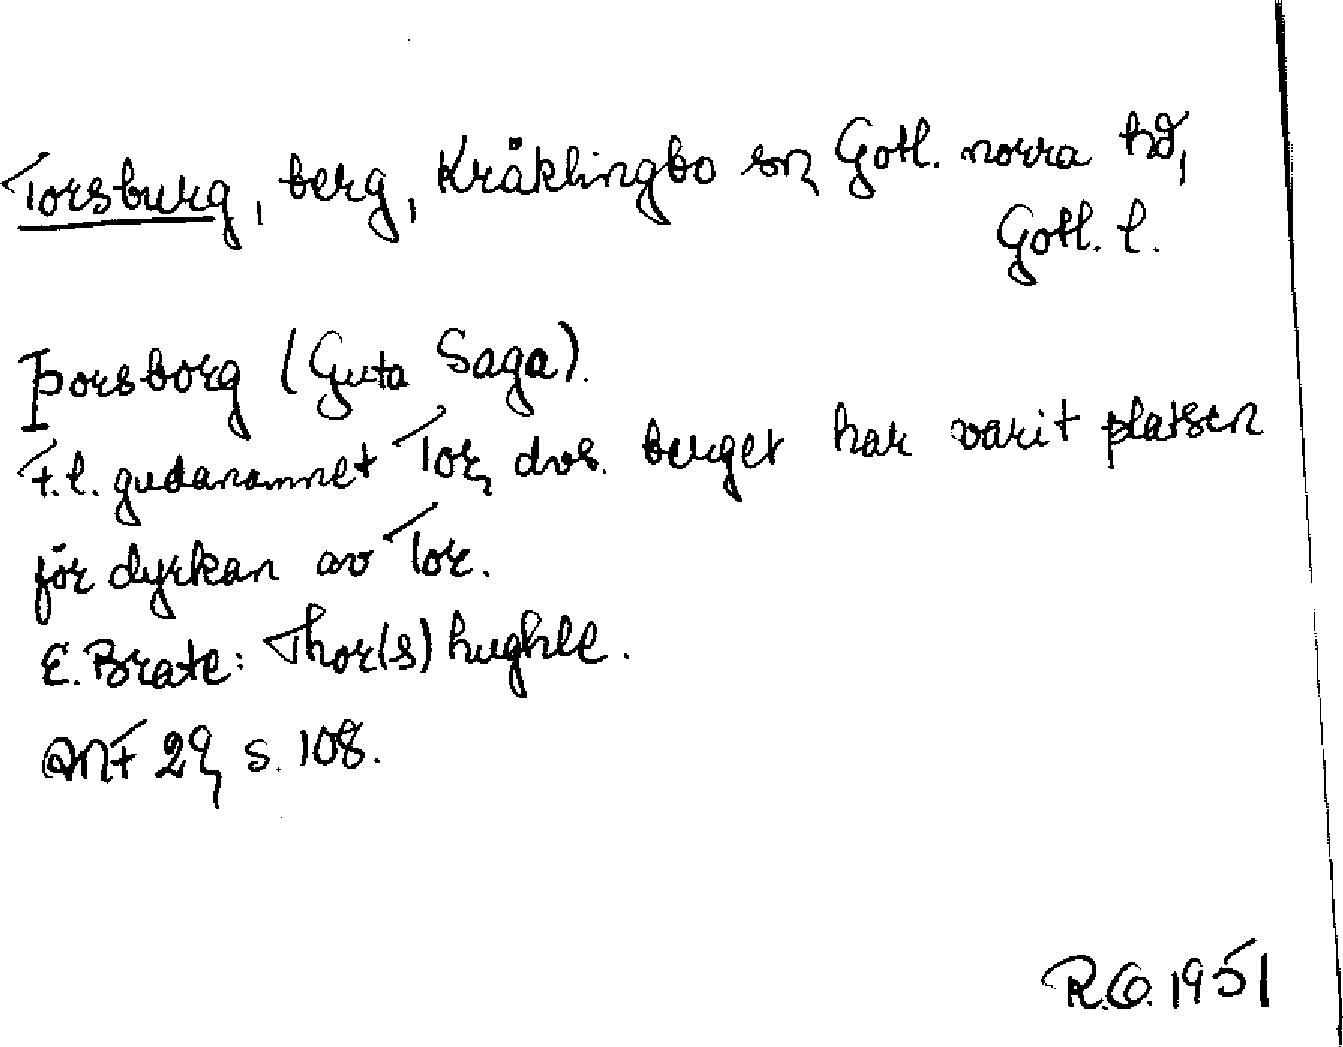 Torsburg, berg, Kräklingbo sn, Gotl. norra hd,
Gotl. l.
Þorsborg (Guta Saga).
F.l. gudanamnet Tor, dvs. berget har varit platsen
för dyrkan av Tor.
E. Brate: Thor(s) hughle.
ANF 29, s. 108.
R.O. 1951